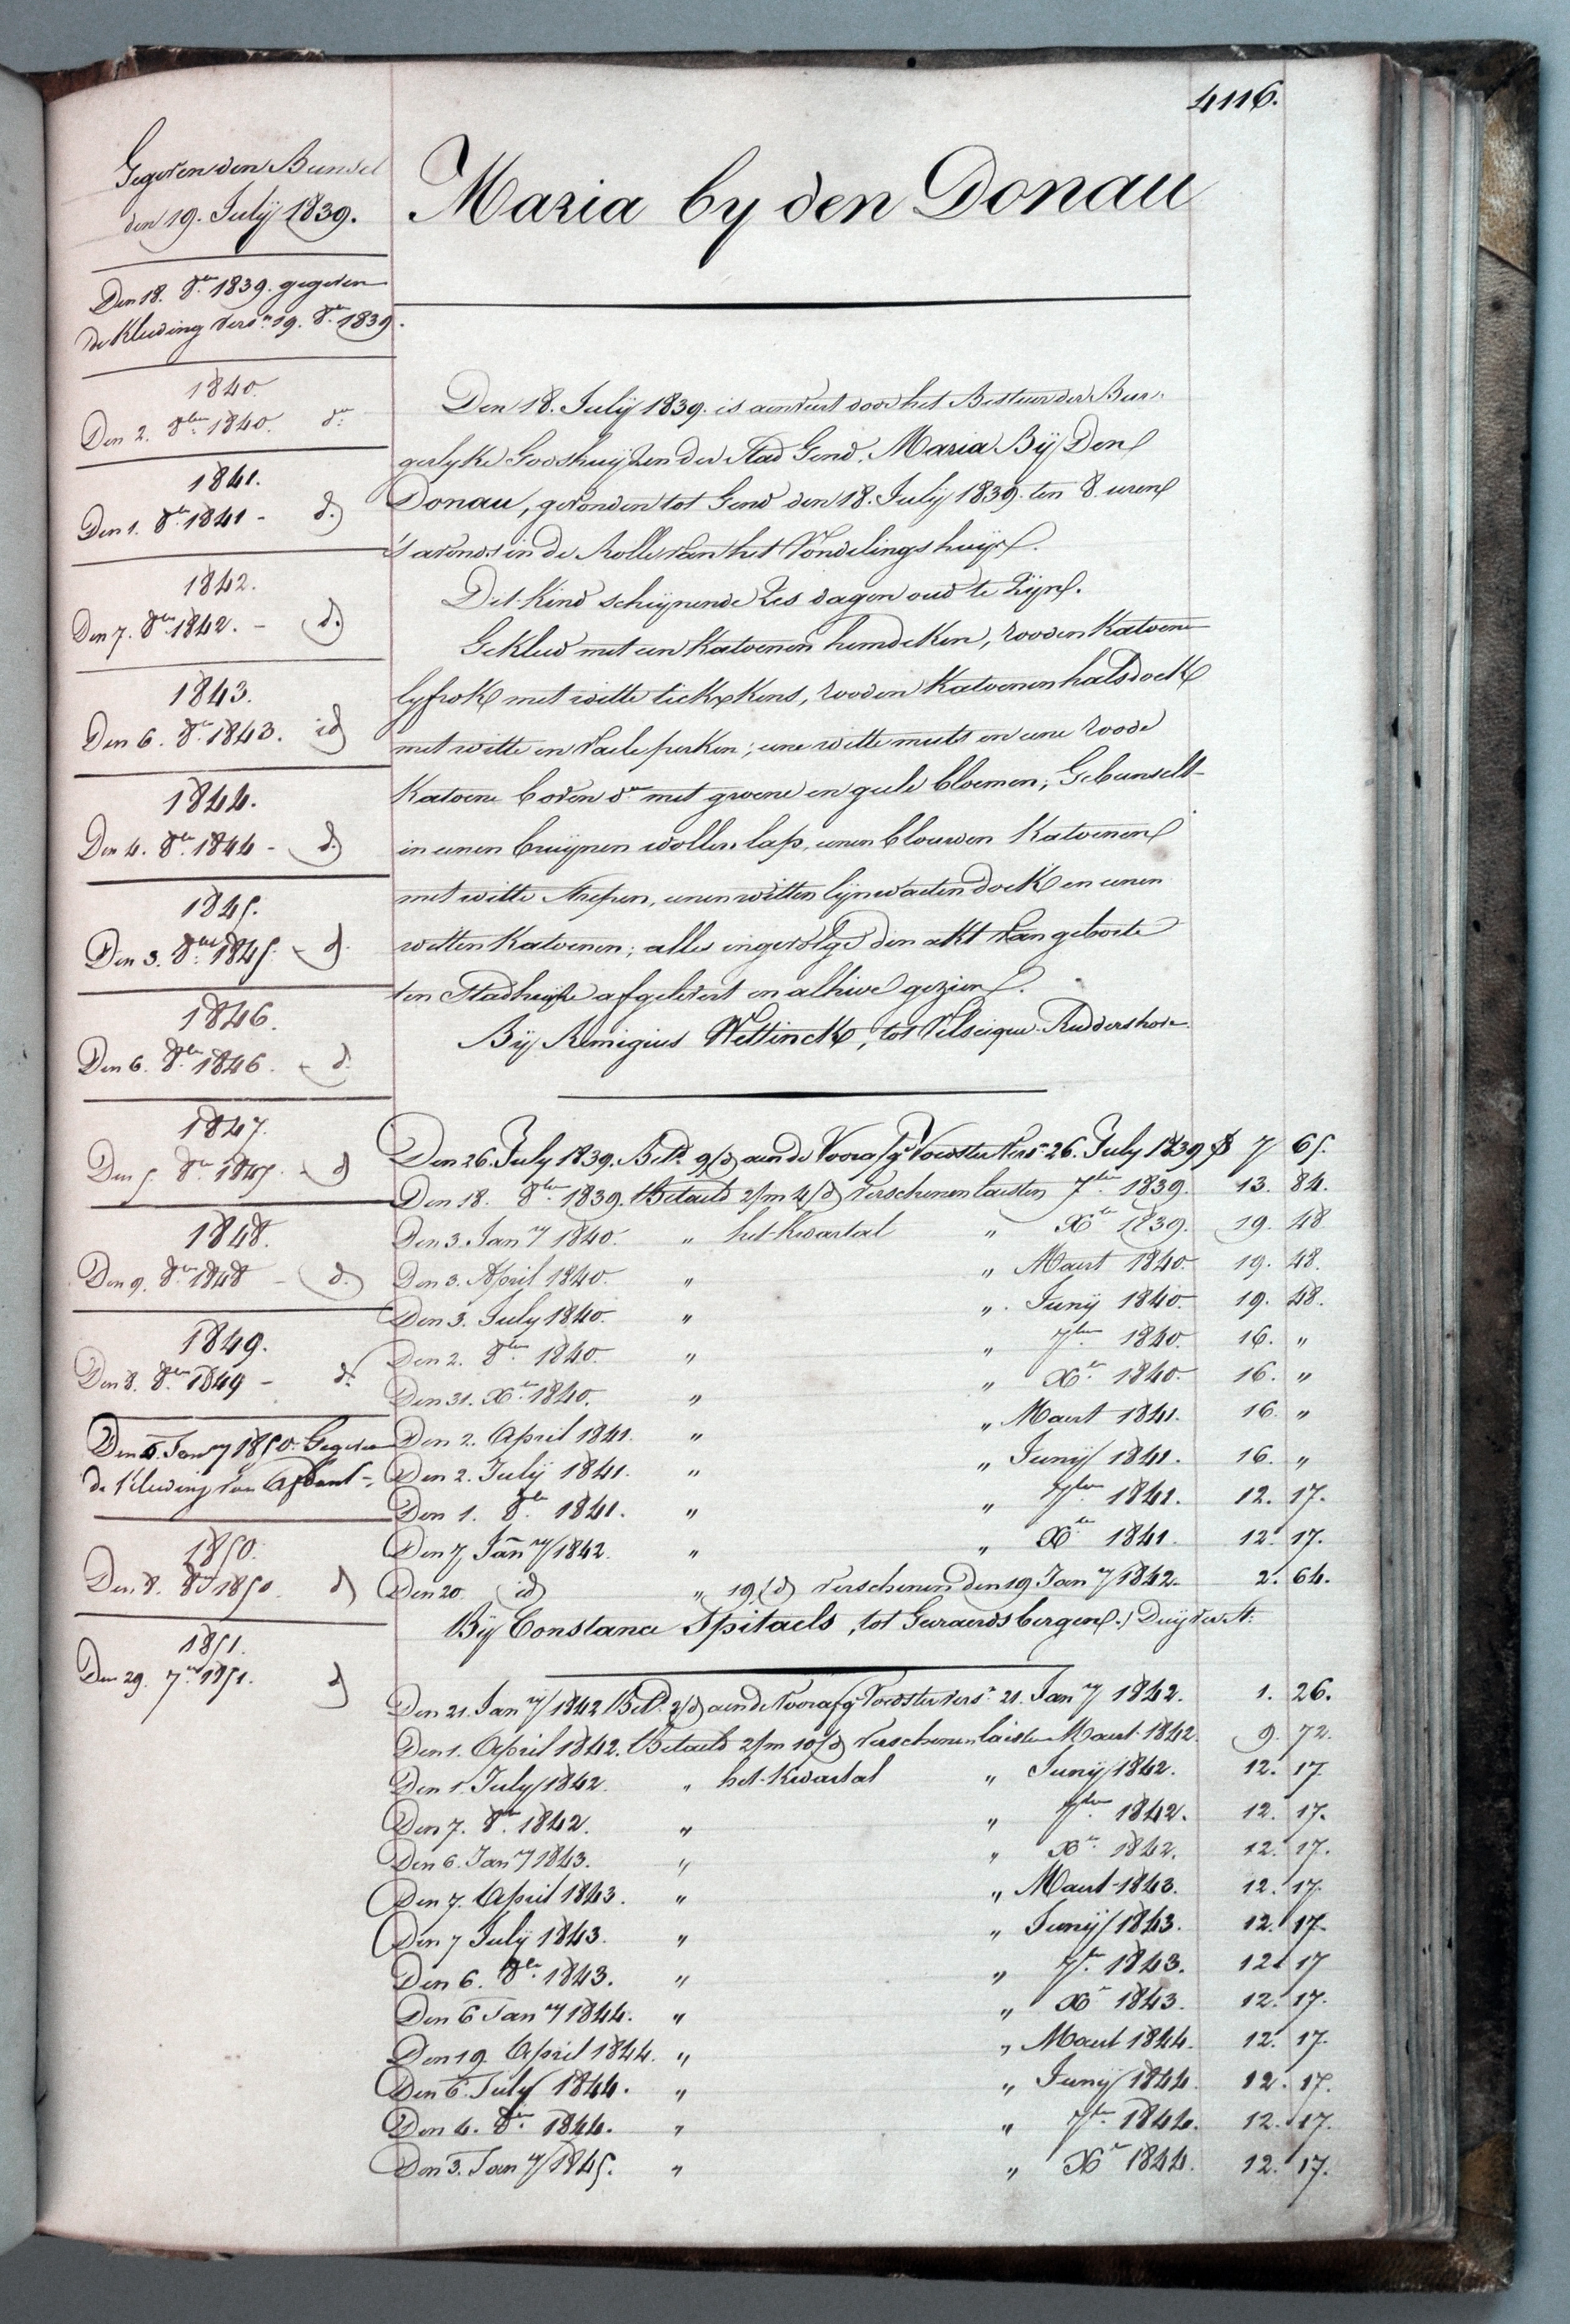 4116.
Gegeven den Bunsel
den 19. Julij 1839.
Den 18. 8er 1839. gegeven
de Kleeding vers.n 19. 8er 1839.
1840.
Den 2. 8ber 1840. do
1841.
Den 1. 8er 1841 - do
1842.
Den 7. 8er 1842. - do
1843.
Den 6. 8er 1843. id
1844.
Den 4. 8er 1844 - do
1845.
Den 3. 8er 1845. - do
1846.
Den 6. 8er 1846. - do
1847.
Den 5. 8er 1847. - do
1848.
Den 9. 8er 1848 - do
1849.
Den 8. 8er 1849 - do
Den 5. Jan.ry 1850. Gegeven
de Kleeding van
1850.
Den 8. 8er 1850. do
1851.
Den 29. 7er 1851. do
Maria by den Donau
Den 18. Julij 1839. is aenveert door het Bestuer der Bur-
gerlyke Godshuijzen der Stad Gend, Maria Bij Den
Donau, gevonden tot Gend den 18. Julij 1839. ten 8. uren
's avonds in de Rolle van het Vondelingshuijs.
Dit Kind schijnende zes dagen oud te zijn.
Gekleed met een Katoenen hemdeken, rooden Katoene
lyfrok met witte tickxkens, rooden Katoenen halsdoek
met witte en vaele perken; eene witte muts en eene roode
Katoene boven do met groene en geele bloemen; Gebunselt
in eenen bruijnen wollen lap, eenen blouwen Katoenen
met witte strepen, eenen witten lijnwaeten doek en eenen
witten Katoenen; alles ingevolge den akt van geboorte
ten Stadhuijse afgelevert en alhier gezien.
Bij Remigius Wettinck, tot Velseique-Ruddershove.
Den 26. July 1839. Bet.d 9/d aen de Vooraf.ge Voedster Vers.n 26. July 1839 7 65.
Den 18. 8er 1839. Betaeld 2/m 4/d Verschenen laesten 7ber 1839. 13. 84.
Den 3. Jan.ry 1840. " het Kwartael " Xer 1839. 19. 48
Den 3. April 1840. " " Maert 1840. 19. 48.
Den 3. July 1840. " " Junij 1840. 19. 48.
Den 2. 8er 1840. " " 7ber 1840. 16. "
Den 31. Xer 1840. " " Xer 1840. 16. "
Den 2. April 1841. " " Maert 1841. 16. "
Den 2. Julij 1841. " " Junij 1841. 16. "
Den 1. 8er 1841. " " 7ber 1841. 12. 17.
Den 7 Jan.ry 1842. " " Xer 1841. 12. 17.
Den 20. id " 19/d Verschenen den 19 Jan.ry 1842. 2. 64.
Bij Constance Spitaels, tot Geraerdsbergen.
Den 21. Jan.ry 1842 Bet.d 2/d aen de Vooraf.ge Voedster vers.n 21. Jan.ry 1842. 1. 26.
Den 1. April 1842. Betaeld 2/m 10/d Verschenen laesten Maert 1842. 9. 72.
Den 1. July 1842. " het Kwartal " Junij 1842. 12. 17.
Den 7. 8er 1842. " " 7ber 1842. 12. 17.
Den 6. Jan.ry 1843. " " Xer 1842. 12. 17.
Den 7. April 1843. " " Maert 1843. 12. 17.
Den 7 Julij 1843. " " Junij 1843. 12. 17.
Den 6. 8er 1843. " " 7er 1843. 12. 17
Den 6 Jan.ry 1844. " " Xer 1843. 12. 17.
Den 19 April 1844. " " Maert 1844. 12. 17.
Den 6. July 1844. " " Junij 1844. 12. 17.
Den 4. 8er 1844. " " 7er 1844. 12. 17.
Den 3. Jan.ry 1845. " " Xer 1844. 12. 17.